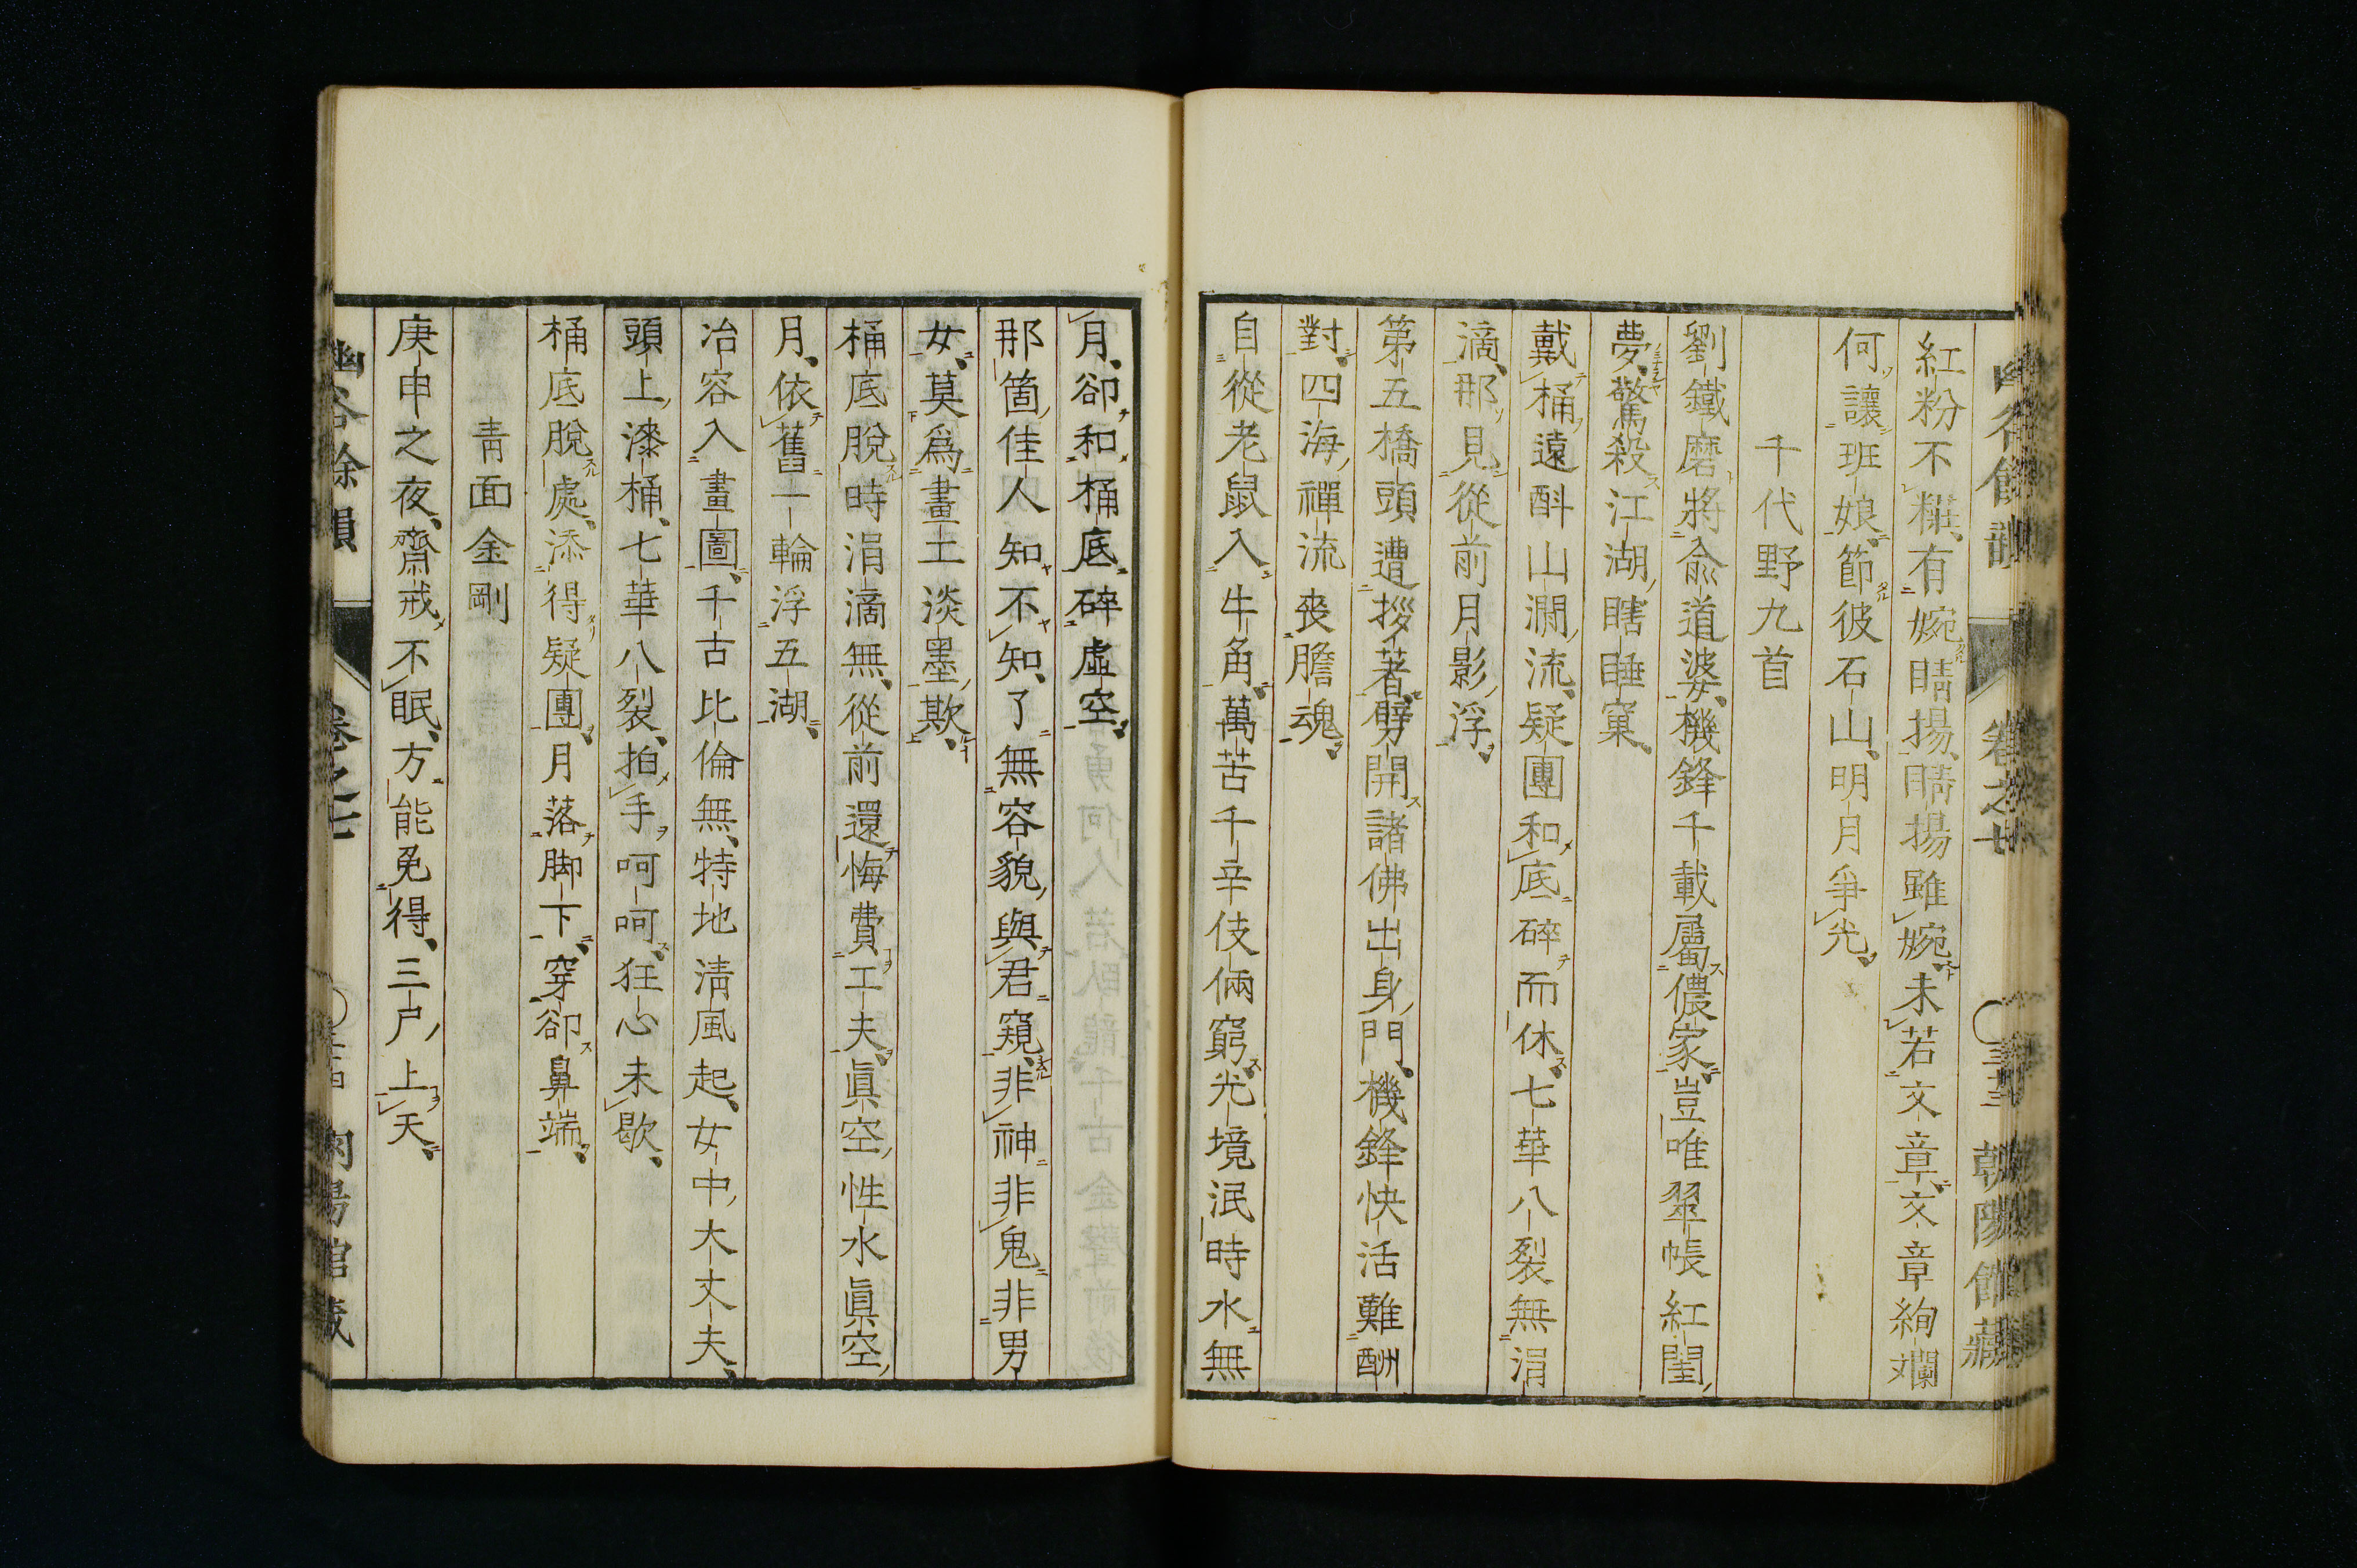 紅粉不糚有婉睛揚睛揚雖婉未若文章文章絢爛
何讓班娘節彼石山明月爭光
千代野九首
劉鐵磨將兪道婆機鋒千載屬儂家豈唯翠帳紅閨
夢驚殺江湖瞎睡窠
戴桶遠斟山澗流疑團和底碎而休七華八裂無涓
滴那見從前月影浮
第五橋頭遭拶著劈開諸佛出身門機鋒快活難酬
對四海禪流喪膽魂
自從老鼠入牛角萬苦千辛伎倆窮光境泯時水無
月卻和桶底碎虛空
那箇佳人知不知了無容貌與君窺非神非鬼非男
女莫爲畫工淡墨欺
桶底脫時涓滴無從前還悔費工夫眞空性水眞空
月依舊一輪浮五湖
冶容入畫圖千古比倫無特地淸風起女中大丈夫
頭上漆桶七華八裂拍手呵呵狂心未歇
桶底脫處添得疑團月落脚下穿卻鼻端
靑面金剛
庚申之夜齋戒不眠方能免得三尸上天
幽谷餘韻 卷之七 朝陽館藏